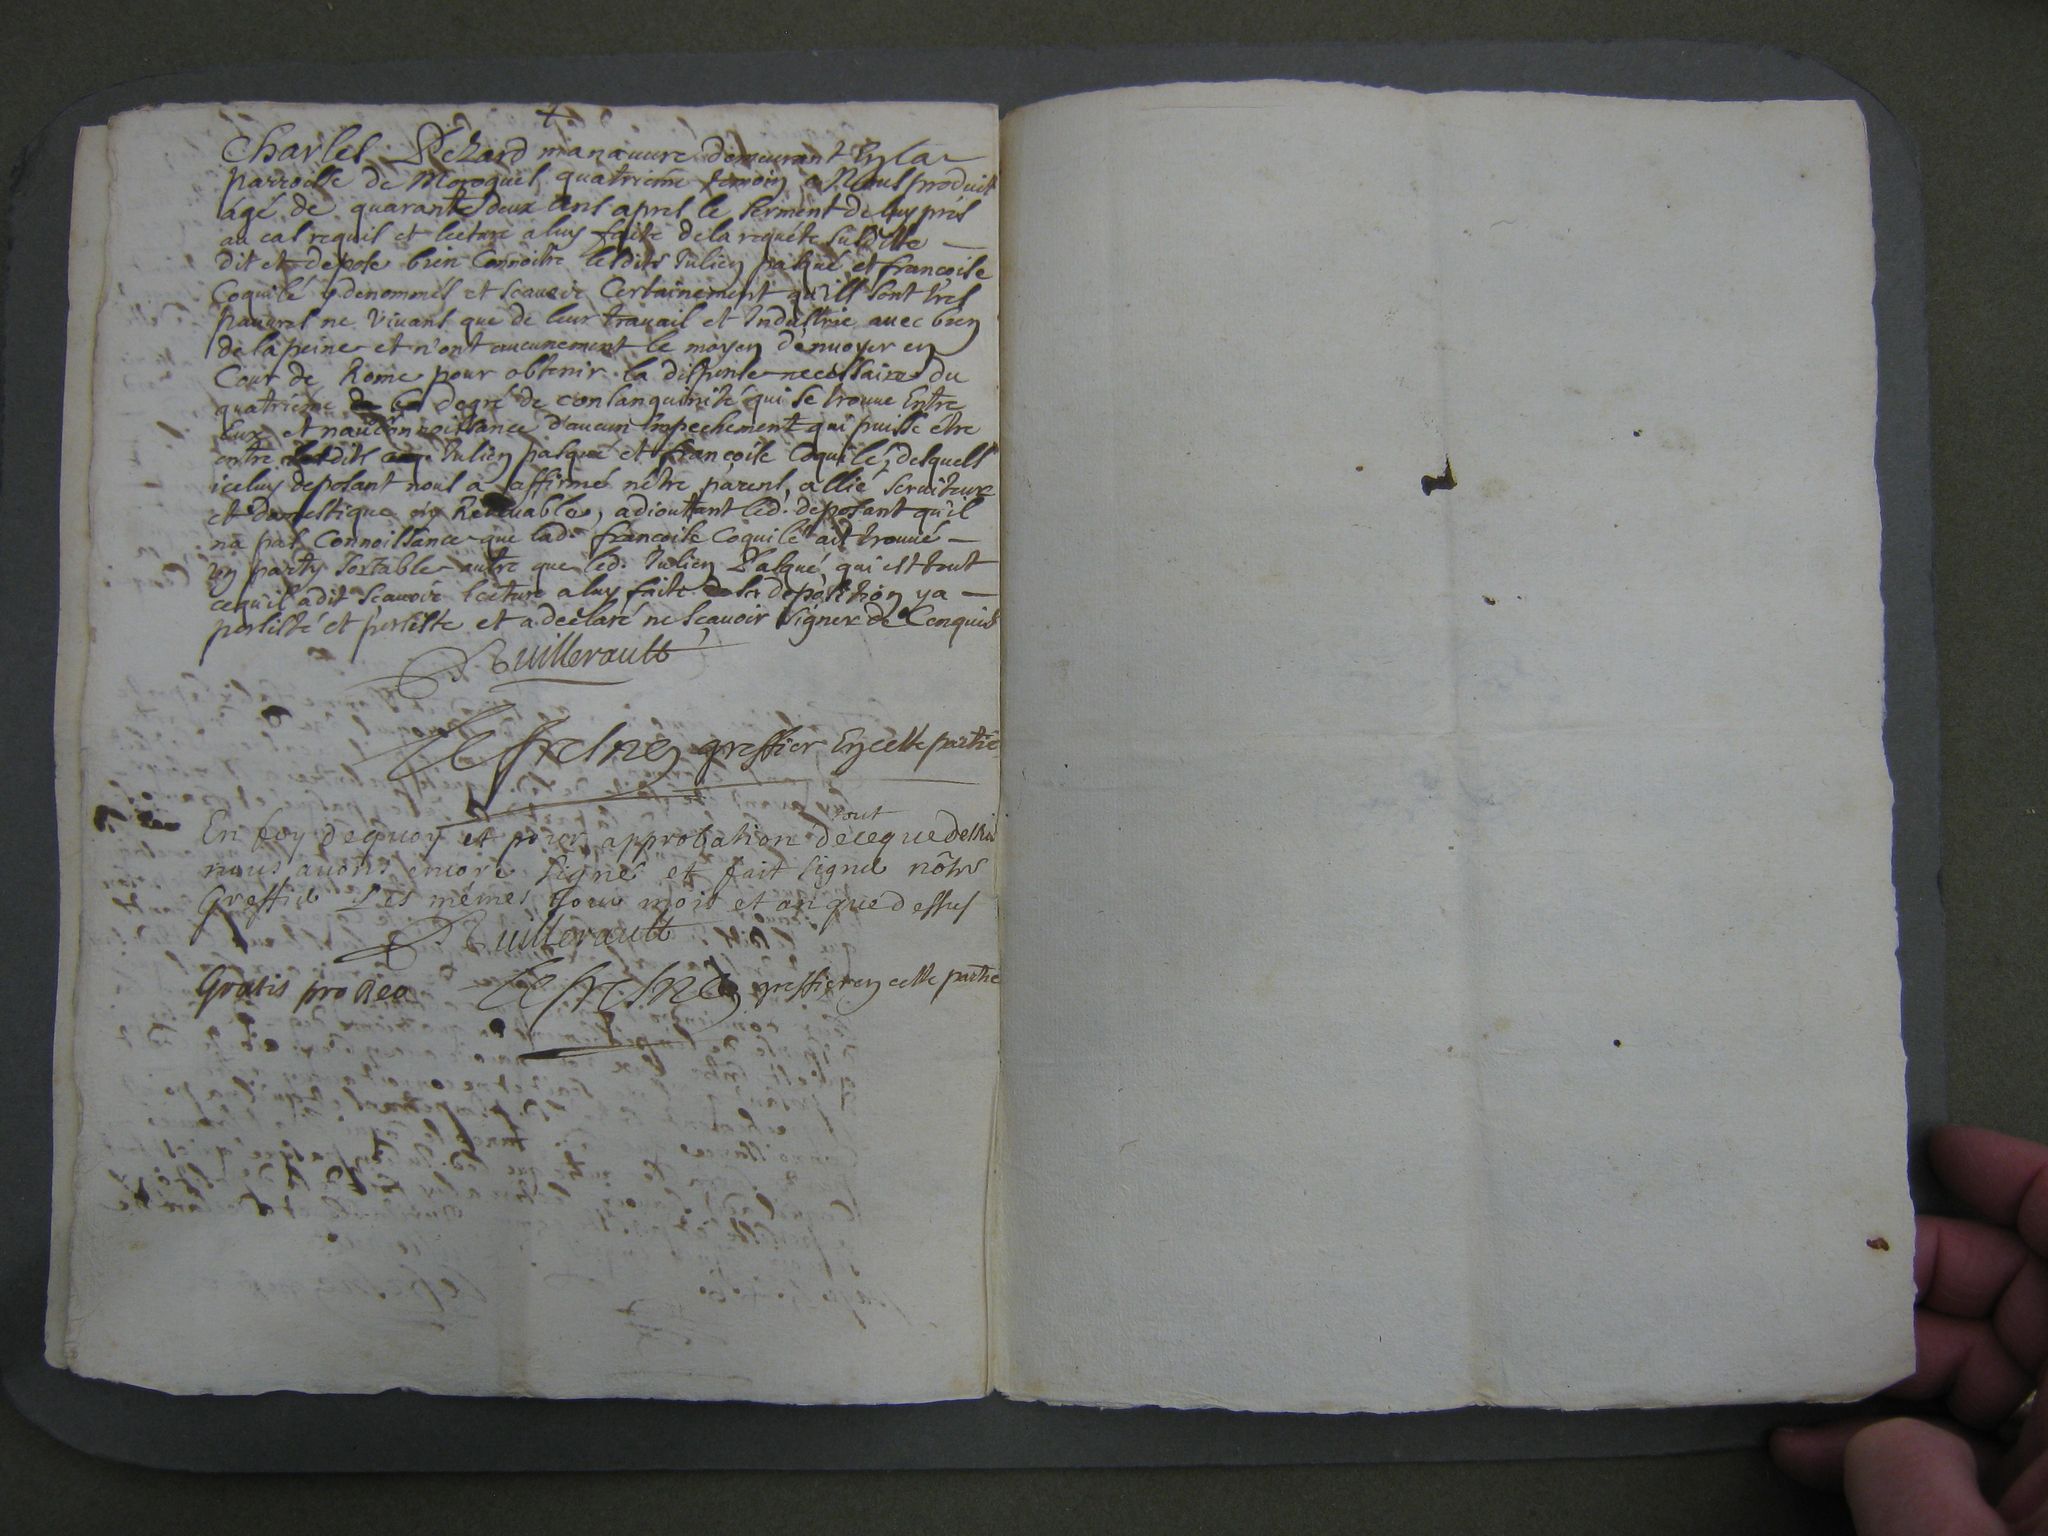 Charles Pezard manœuvre demeurant En la
parroisse de Moroques quatrieme temoin a Nous produit
agé de quarante deux ans apres le serment de luy pris
au cas requis et lecture a luy faite de la requete susditte
dit et depose bien Connoitre lesdits Julien pasqué et françoise
Coquilé y denommés et scauoir Certainement qu'ils sont tres
pauures ne Viuans que de leur trauail et Industrie auec bien
de la peine et n'ont aucunement le moyen d'enuoyer en
Cour de Rome pour obtenir la dispense necessaire du
quatrieme degré de consanguinité qui se trouue Entre
Eux et n'auoir connoissance d'aucun Empechement qui puisse étre
entre lesdits Julien pasqué et françoise Coquilé, desquels
iceluy deposant nous a affirmé n'étre parent, allié seruiteur
et domestique ny Reduable, adioutant led. deposant qu'il
na pas Connoissance que lad. françoise Coquilé ait trouué
un party Sortable autre que led. Julien Pasqué qui est tout
cequ'il a dit Scauoir lecture a luy faite de sa deposition y a
persisté et persiste et a declaré ne Scauoir Signer de Ce enquis
Ruillerault
Lefresne greffier En cette partie
En foy dequoy et pour approbation de tout ceque dessus
nous auons encore signé et fait signer nôtre
Greffier Les mémes jour mois et an que dessus
Ruillerault
Gratis pro Deo Lefresne greffier en cette partie